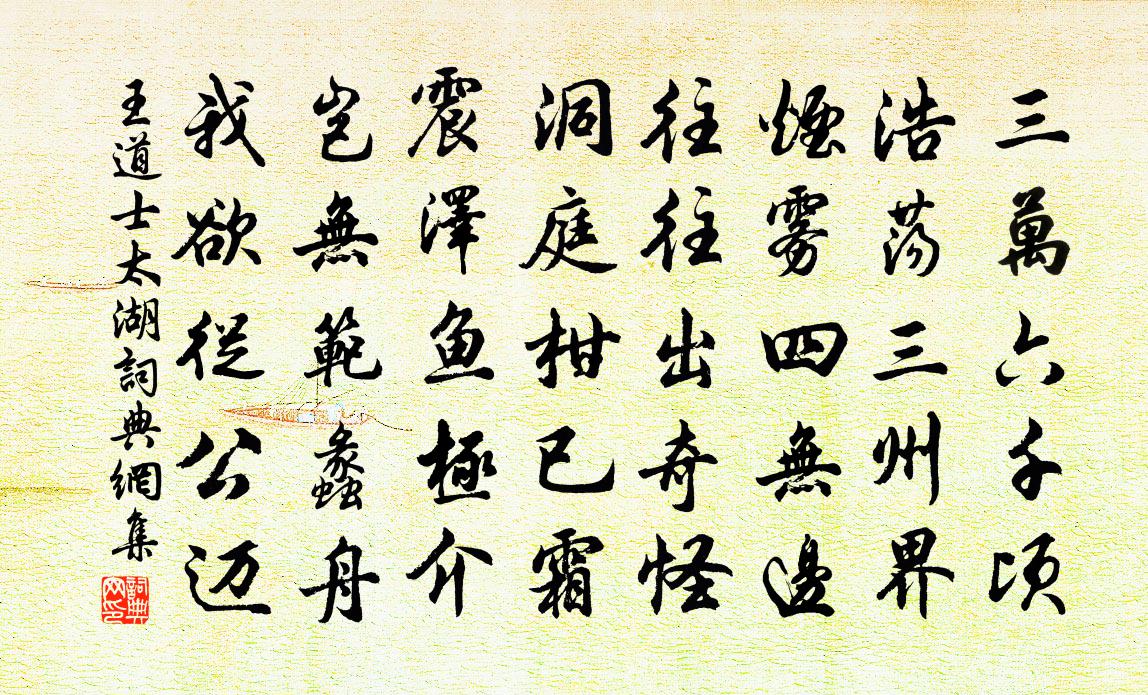 三萬六千頃
浩荡三州界
煙雾四無邊
往往出奇怪
洞庭柑已霜
震澤鱼極介
岂無範蠡舟
我欲從公迈
王道士太湖詞典網集
詞典网印